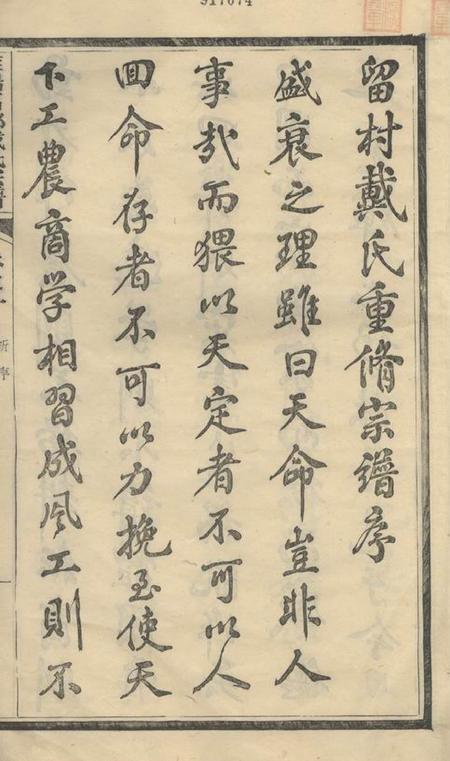 917074
留村戴氏重脩宗譜序
盛衰之理雖曰天命豈非人
事哉而猥以天定者不可以人
回命存者不可以力挽至使天
下工農商学相習成風工則不
新序